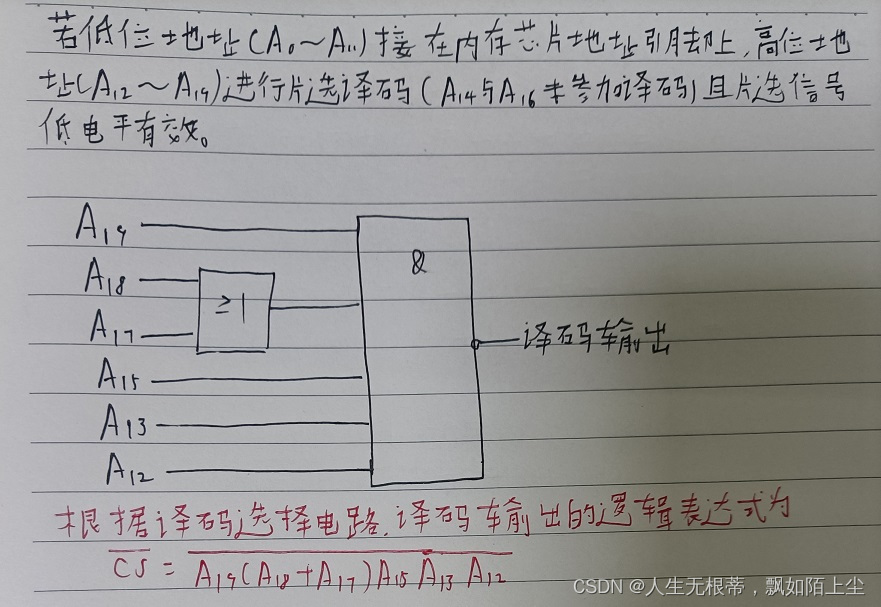 若低位地址(A₀～A₁₁)接在内存芯片地址引脚上,高位地
址(A₁₂～A₁₉)进行片选译码(A₁₄与A₁₆未参加译码)且片选信号
低电平有效。
A₁₉
&
A₁₈
≥1
A₁₇
译码输出
A₁₅
A₁₃
A₁₂
根据译码选择电路,译码输出的逻辑表达式为
C̅S̅ = \overline{A₁₉(A₁₈+A₁₇)A₁₅A₁₃A₁₂}
CSDN @人生无根蒂，飘如陌上尘